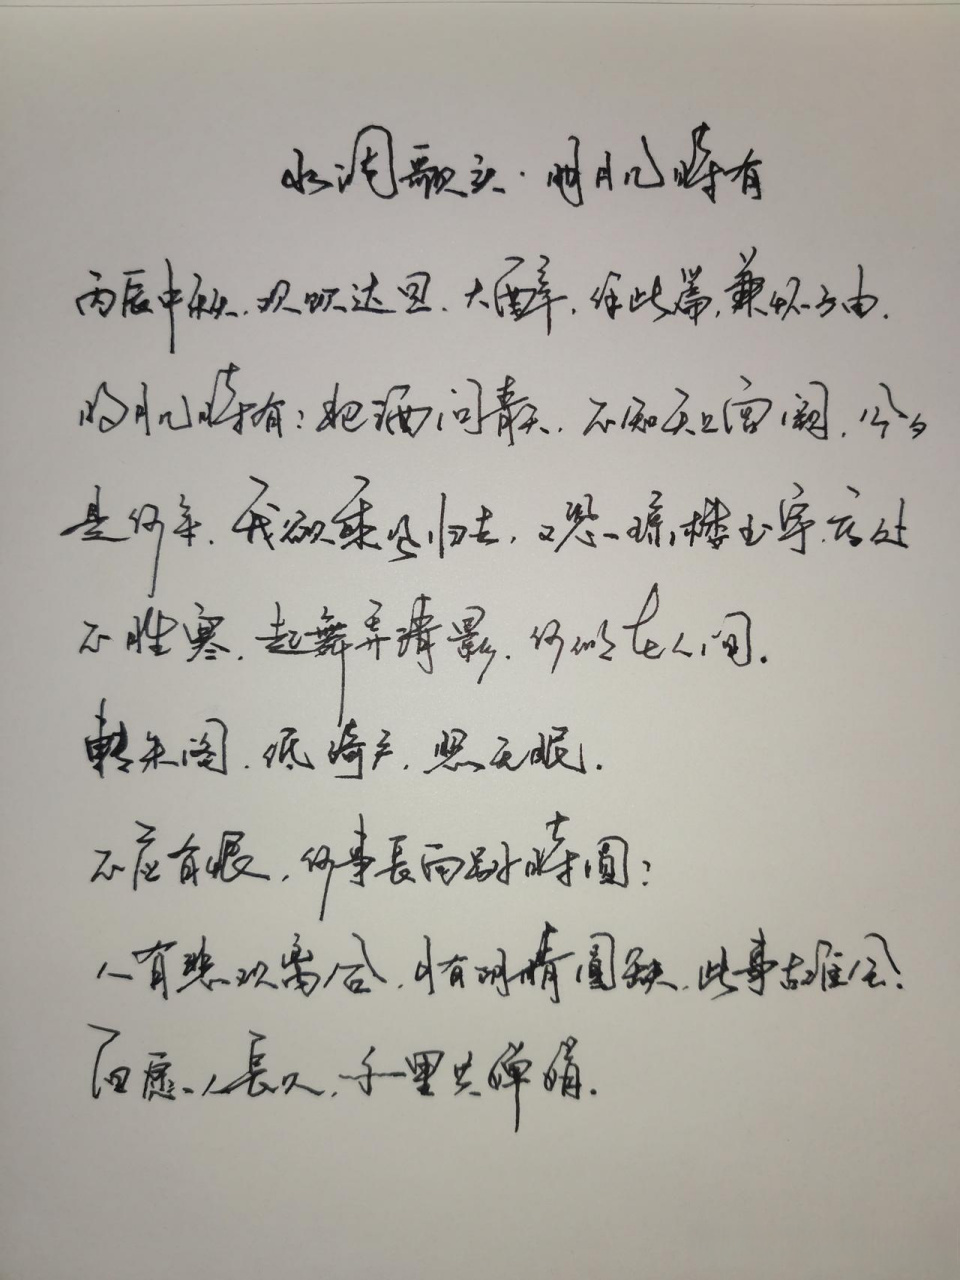 水调歌头·明月几時有
丙辰中秋,欢饮达旦,大醉,作此篇,兼怀子由.
明月几時有?把酒问青天.不知天上宫阙,今夕
是何年.我欲乘风归去,又恐琼楼玉宇,高处
不胜寒.起舞弄清影,何似在人间.
轉朱阁,低绮户,照无眠.
不应有恨,何事長向别時圓?
人有悲欢离合,月有阴晴圆缺,此事古难全.
但愿人長久,千里共婵娟.